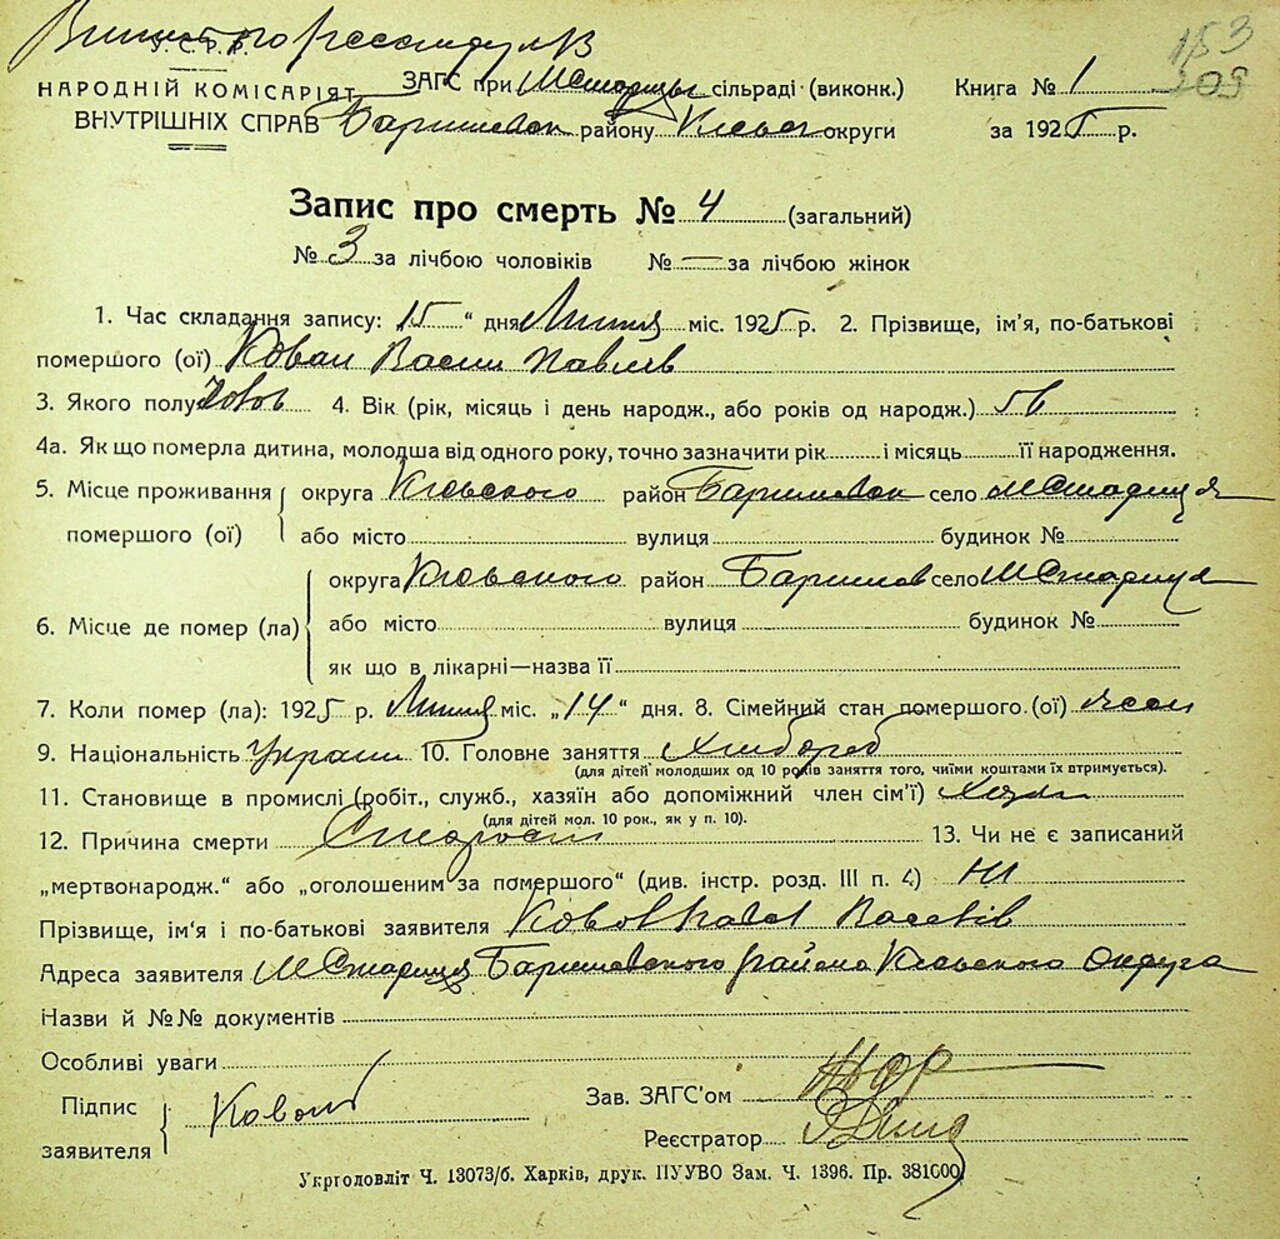 153
209
У.С.Р.Р.
НАРОДНІЙ КОМІСАРІЯТ
ВНУТРІШНІХ СПРАВ
ЗАГС при МСтариць сільраді (виконк.)
Баришевск району Київськ округи
Книга № 1
за 1925 р.
Запис про смерть № 4 (загальний)
№ 3 за лічбою чоловіків № — за лічбою жінок
1. Час складання запису: 15 “ дня Липня міс. 1925 р. 2. Прізвище, ім’я, по-батькові
помершого (ої) Ковал Васил Павлов
3. Якого полу Чолов 4. Вік (рік, місяць і день народж., або років од народж.) 56
4а. Як що померла дитина, молодша від одного року, точно зазначити рік і місяць її народження.
5. Місце проживання помершого (ої)
округа Київського район Баришевск село МСтариця
або місто вулиця будинок №
6. Місце де помер (ла)
округа Київського район Баришев село МСтариця
або місто вулиця будинок №
як що в лікарні—назва її
7. Коли помер (ла): 1925 р. Липня міс. „14“ дня. 8. Сімейний стан помершого (ої)
9. Національність Україн 10. Головне заняття Хлібороб
(для дітей молодших од 10 років заняття того, чиїми коштами їх втримується).
11. Становище в промислі (робіт., служб., хазяїн або допоміжний член сім’ї) Хозяін
(для дітей мол. 10 рок., як у п. 10).
12. Причина смерти Старост 13. Чи не є записаний
„мертвонародж.“ або „оголошеним за помершого“ (див. інстр. розд. III п. 4) Ні
Прізвище, ім’я і по-батькові заявителя Ковол Васілів
Адреса заявителя МСтариця Баришевского района Київського Округа
Назви й №№ документів
Особливі уваги
Підпис заявителя Ковол
Зав. ЗАГС’ом
Реєстратор
Укрголовліт Ч. 13073/б. Харків, друк. ПУУВО Зам. Ч. 1396. Пр. 381000.